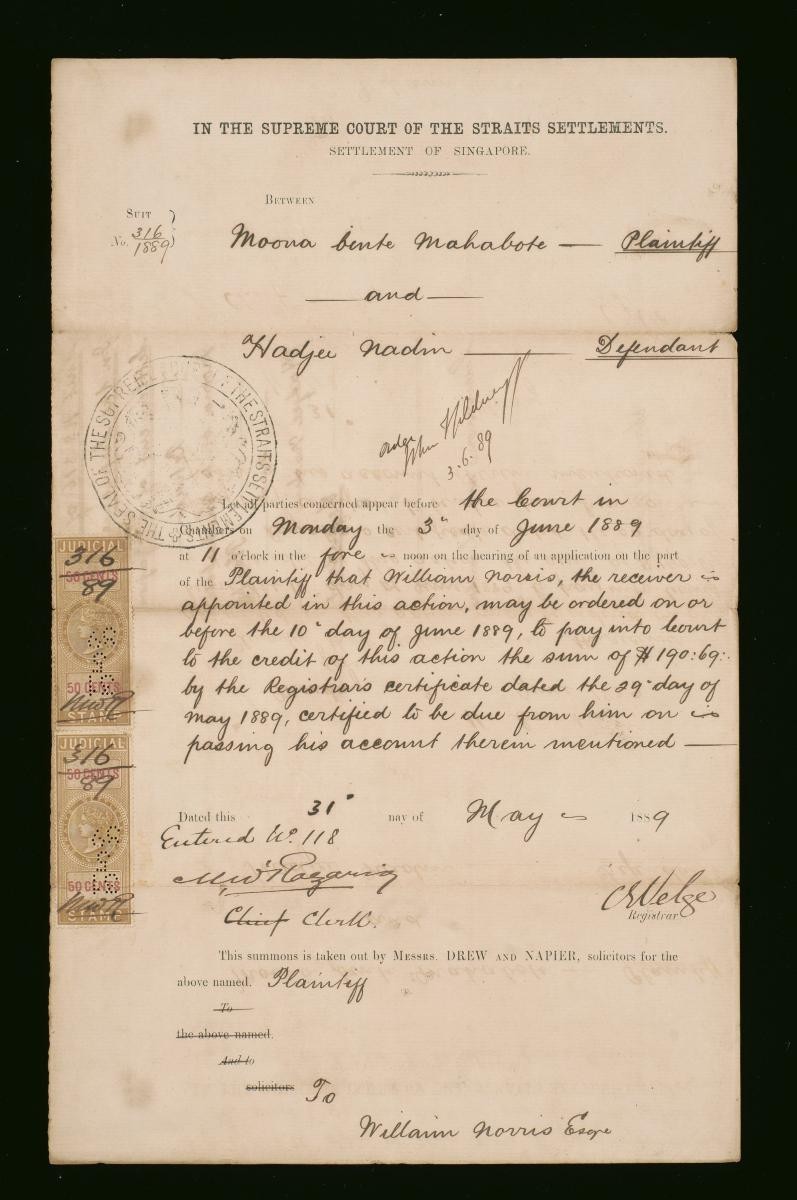 IN THE SUPREME COURT OF THE STRAITS SETTLEMENTS.
SETTLEMENT OF SINGAPORE.
BETWEEN
SUIT
No. 316
1889
Moona binte Mahabote — Plaintiff
— and —
Hadjee Nadin — Defendant
THE SEAL OF THE SUPREME COURT OF THE STRAITS SETTLEMENTS
order
3.6.89
Let all parties concerned appear before the Court in
Chambers on Monday the 3" day of June 1889
at 11 o'clock in the fore noon on the hearing of an application on the part
of the Plaintiff that William Norris, the receiver
appointed in this action, may be ordered on or
before the 10" day of June 1889, to pay into Court
to the credit of this action the sum of $190:69:
by the Registrar's certificate dated the 29" day of
May 1889, certified to be due from him on
passing his account therein mentioned —
JUDICIAL
316
50 CENTS
89
50 CENTS
STAMP
JUDICIAL
316
50 CENTS
89
50 CENTS
STAMP
Dated this 31" day of May 1889
Entered No. 118
Chief Clerk.
Registrar
This summons is taken out by MESSRS. DREW AND NAPIER, solicitors for the
above named. Plaintiff
To
the above named.
And to
solicitors To
William Norris Esqre